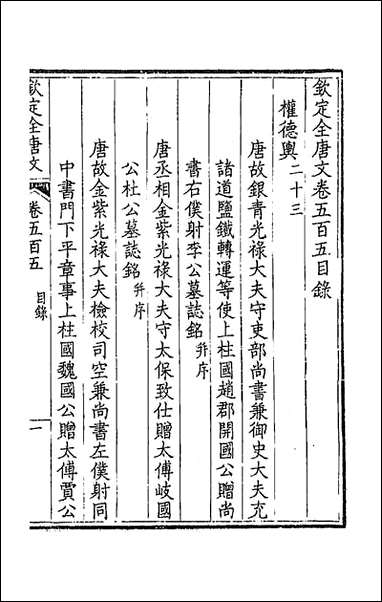 欽定全唐文卷五百五目錄
權德輿二十三
唐故銀青光祿大夫守吏部尚書兼御史大夫充
諸道鹽鐵轉運等使上柱國趙郡開國公贈尚
書右僕射李公墓誌銘并序
唐丞相金紫光祿大夫守太保致仕贈太傅岐國
公杜公墓誌銘并序
唐故金紫光祿大夫檢校司空兼尚書左僕射同
中書門下平章事上柱國魏國公贈太傅賈公
欽定全唐文 卷五百五 目錄 一